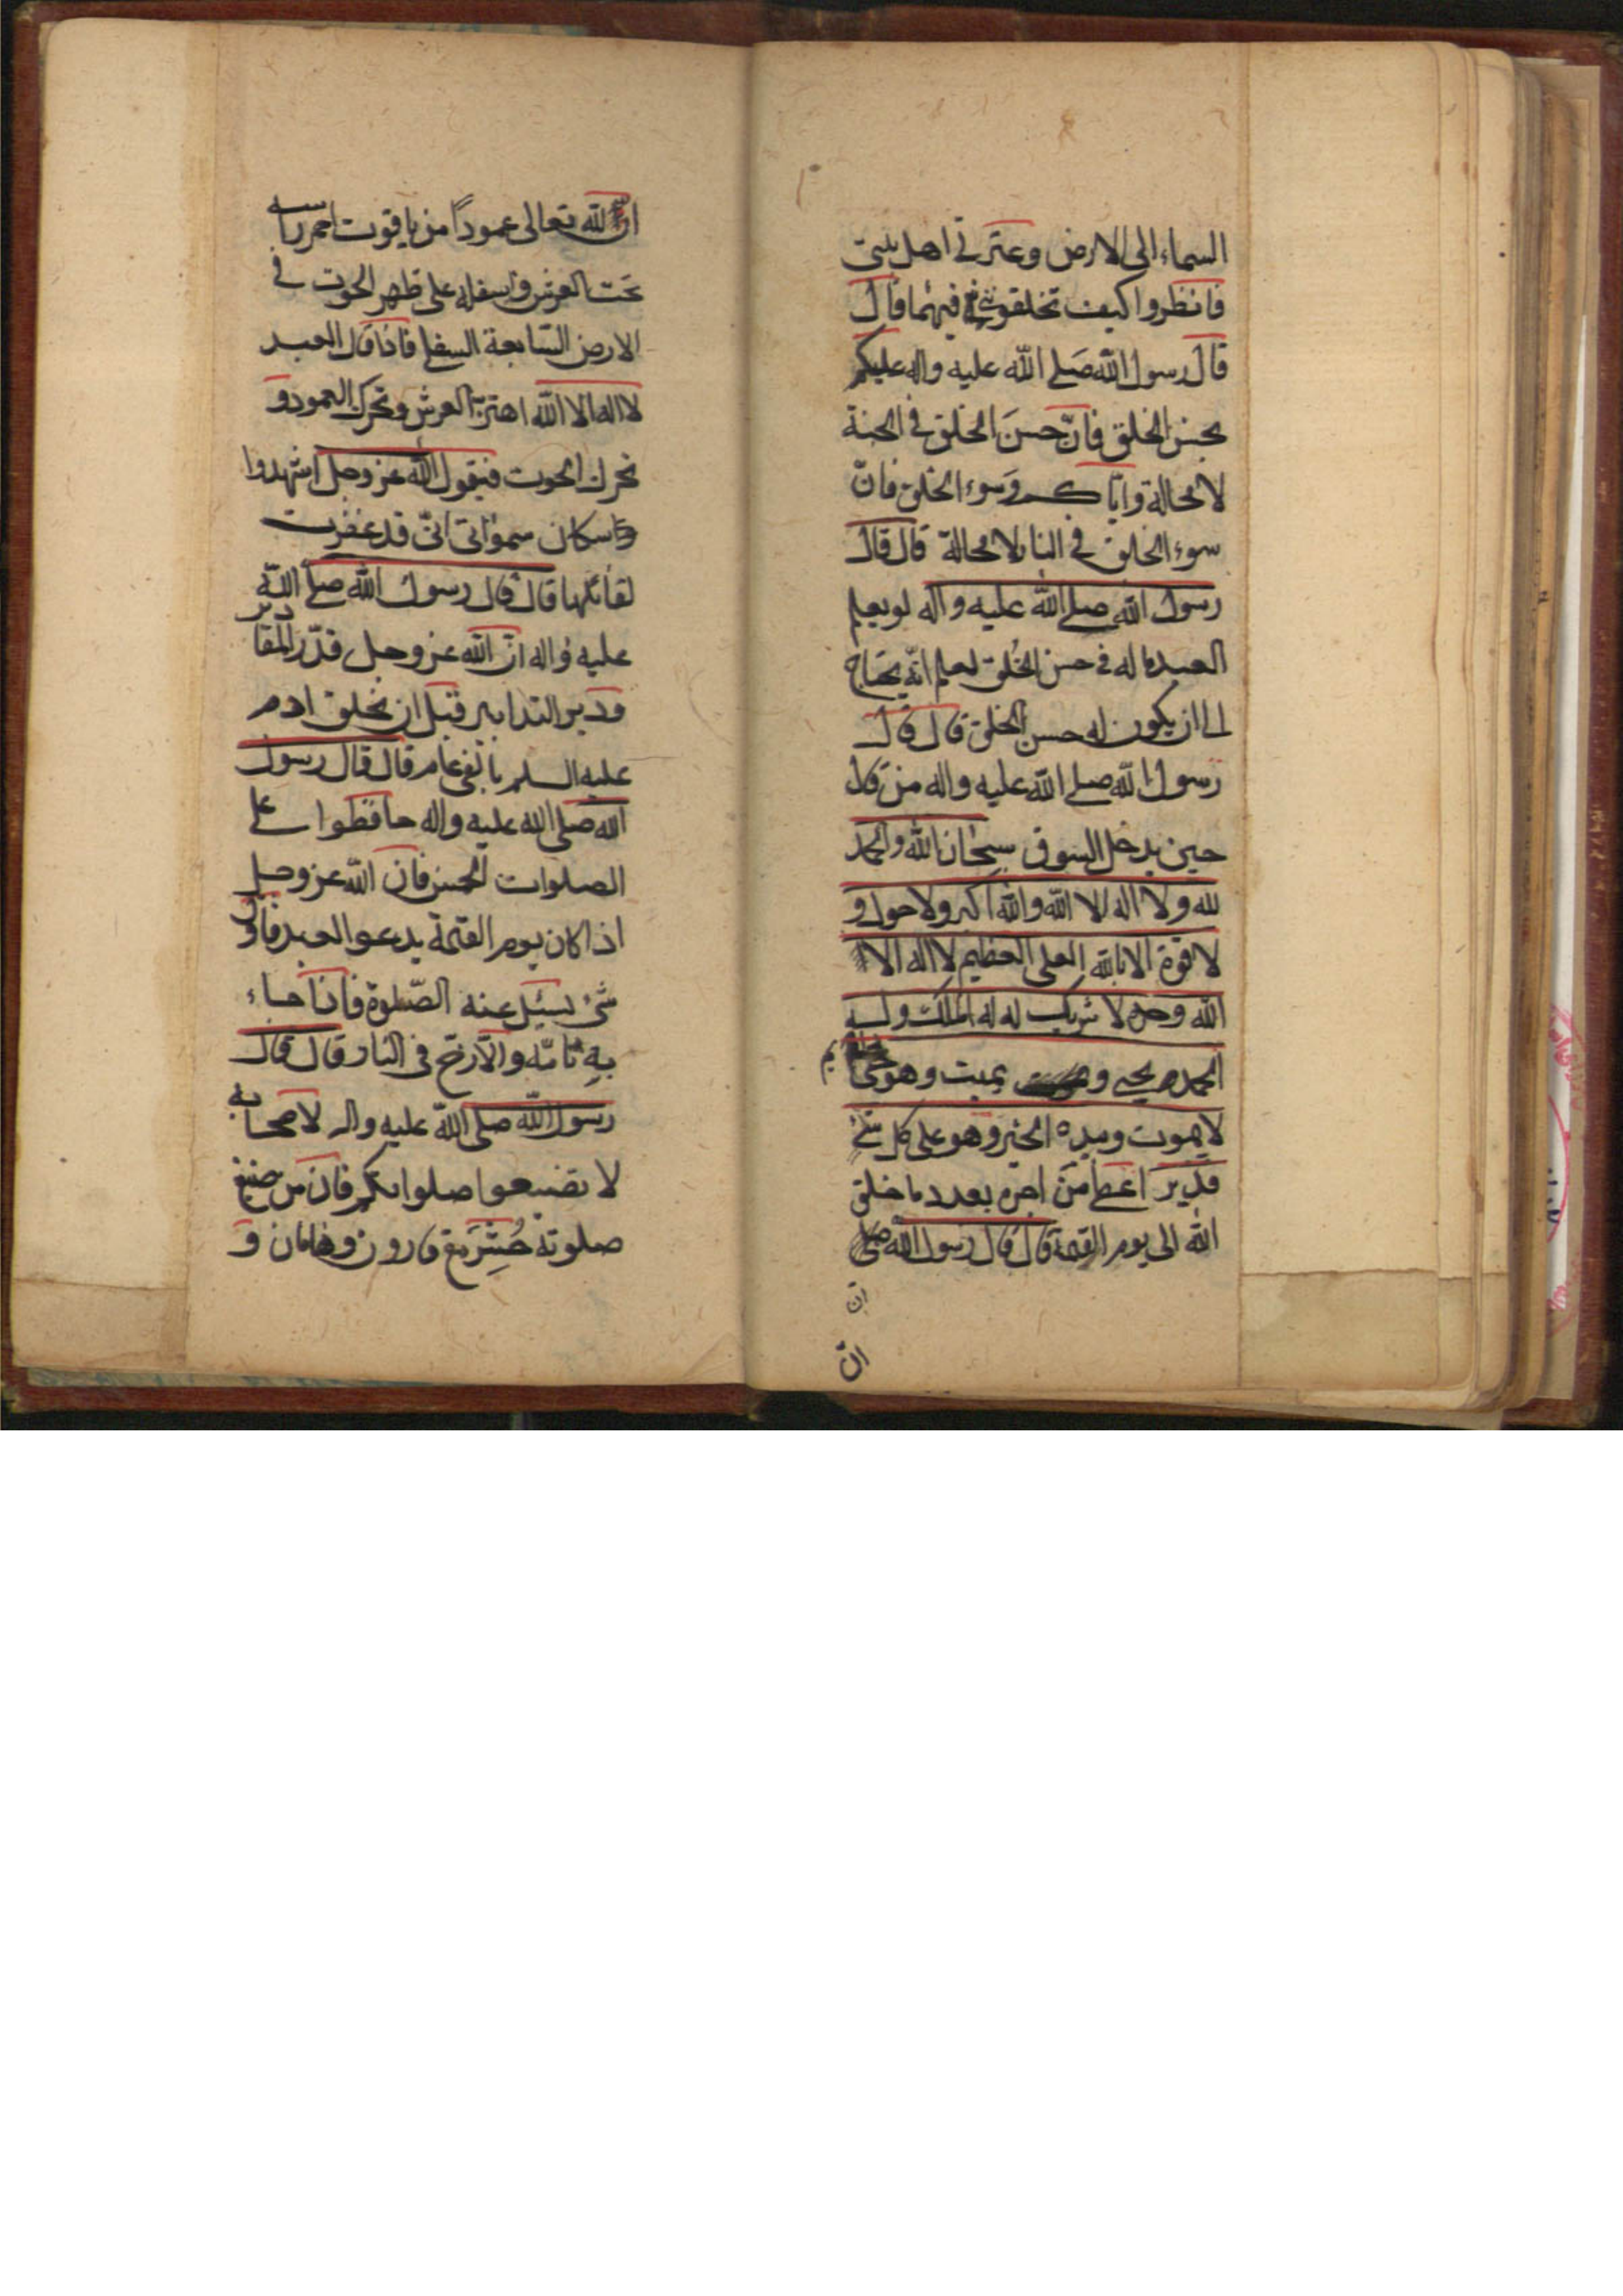 السماء الى الارض وعترتى اهل بيتى
فانظروا كيف تخلفونى فيهما قال
قال رسول الله صلى الله عليه واله عليكم
بحسن الخلق فانّ حسنَ الخلق فى الجنة
لا محالة وايّاكم وسَوء الخلق فانّ
سوء الخلق فى النار لا محالة قال قال
رسول الله صلى الله عليه وآله لو يعلم
العبد ما له فى حسن الخُلق لعلم انّه يحتاج
الى ان يكون له حسن الخلق قال قال
رسول الله صلى الله عليه واله من قال
حين يدخل السوق سبحان الله والحمد
لله ولا اله الا الله والله اكبر ولا حول و
لا قوة الا بالله العلى العظيم لا اله الا
الله وحده لا شريك له له الملك وله
الحمد يحيى و يميت وهو حىّ
لا يموت وبيده الخير وهو على كل شئ
قدير اعطى من اجره بعدد ما خلق
الله الى يوم القيمة قال قال رسول الله صلى
انّ
انّ
انّ لله تعالى عموداً من ياقوت احمر راسه
تحت العرش واسفله على ظهر الحوت فى
الارض السّابعة السفلى فاذا قال العبد
لا اله الا الله اهتزت العرش وتحرك العمود و
تحرك الحوت فيقول الله عز وجل اشهدوا
سكان سمواتى انّى قد غفرت
لقائلها قال قال رسول الله صلى الله
عليه واله انّ الله عز وجل قدّر المقادير
ودبر التدابير قبل ان يخلق ادم
عليه السلم بالفى عام قال قال رسول
الله صلى الله عليه واله حافظوا على
الصلوات الخمس فان الله عز وجل
اذا كان يوم القيمة يدعو العبد فاول
شئ يسئل عنه الصّلوة فاذا جاء
بهِ تامّه والّا زخّ فى النار قال قال
رسول الله صلى الله عليه واله لاصحابه
لا تضيعوا صلواتكم فان من ضيّع
صلوته حُشِرَ مع قارون وهامان و